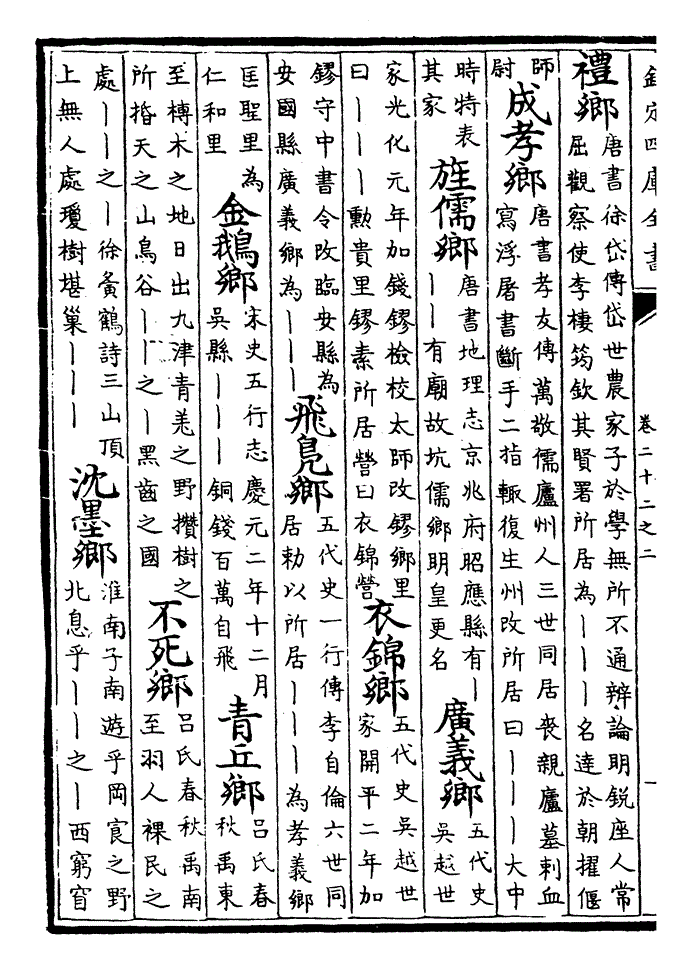 欽定四庫全書
卷二十二之二
一
禮鄉
唐書徐岱傳岱世農家子於學無所不通辨論明銳座人常
屈觀察使李棲筠欽其賢署所居為丨丨丨名達於朝擢偃
師
尉
成孝鄉
唐書孝友傳萬敬儒廬州人三世同居喪親廬墓刺血
寫浮屠書斷手二指輒復生州改所居曰丨丨丨大中
時特表
其家
旌儒鄉
唐書地理志京兆府昭應縣有丨
丨丨有廟故坑儒鄉明皇更名
廣義鄉
五代史
吳越世
家光化元年加錢鏐檢校太師改鏐鄉里
曰丨丨丨勳貴里鏐素所居營曰衣錦營
衣錦鄉
五代史吳越世
家開平二年加
鏐守中書令改臨安縣為
安國縣廣義鄉為丨丨丨
飛鳬鄉
五代史一行傳李自倫六世同
居勅以所居丨丨丨為孝義鄉
匡聖里為
仁和里
金鵝鄉
宋史五行志慶元二年十二月
吳縣丨丨丨銅錢百萬自飛
青丘鄉
呂氏春
秋禹東
至榑木之地日出九津青羌之野攢樹之
所㨉天之山鳥谷丨丨之丨黑齒之國
不死鄉
呂氏春秋禹南
至羽人裸民之
處丨丨之丨徐夤鶴詩三山頂
上無人處瓊樹堪巢丨丨丨
沈墨鄉
淮南子南遊乎岡㝗之野
北息乎丨丨之丨西窮窅